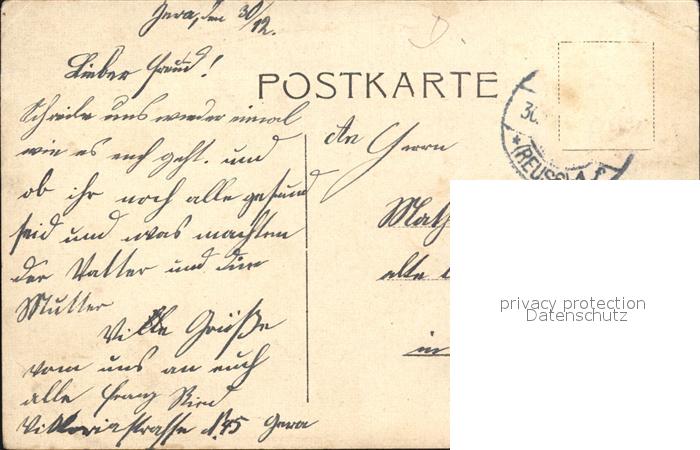 Gera, den 30/12.
Lieber Freund!
POSTKARTE
Schreibe uns wieder einmal
wie es euch geht. und
ob ihr noch alle gesund
seid und was machten
der Vatter und die
Mutter
Ville Grüße
vom uns an euch
alle Franz Ried
Viktoriastrasse N. 45 Gera
An Herrn
Math
alte
in
30.
* (REUSS)
privacy protection
Datenschutz